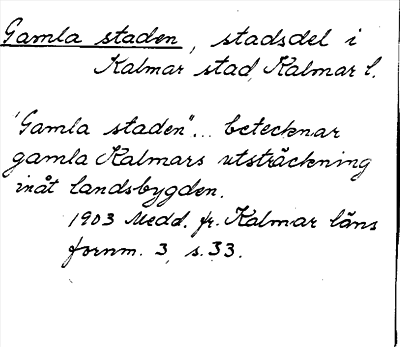 Gamla staden, stadsdel i
Kalmar stad, Kalmar l.
"Gamla staden"... betecknar
gamla Kalmars utsträckning
inåt landsbygden.
1903 Medd. fr. Kalmar läns
fornm. 3, s. 33.